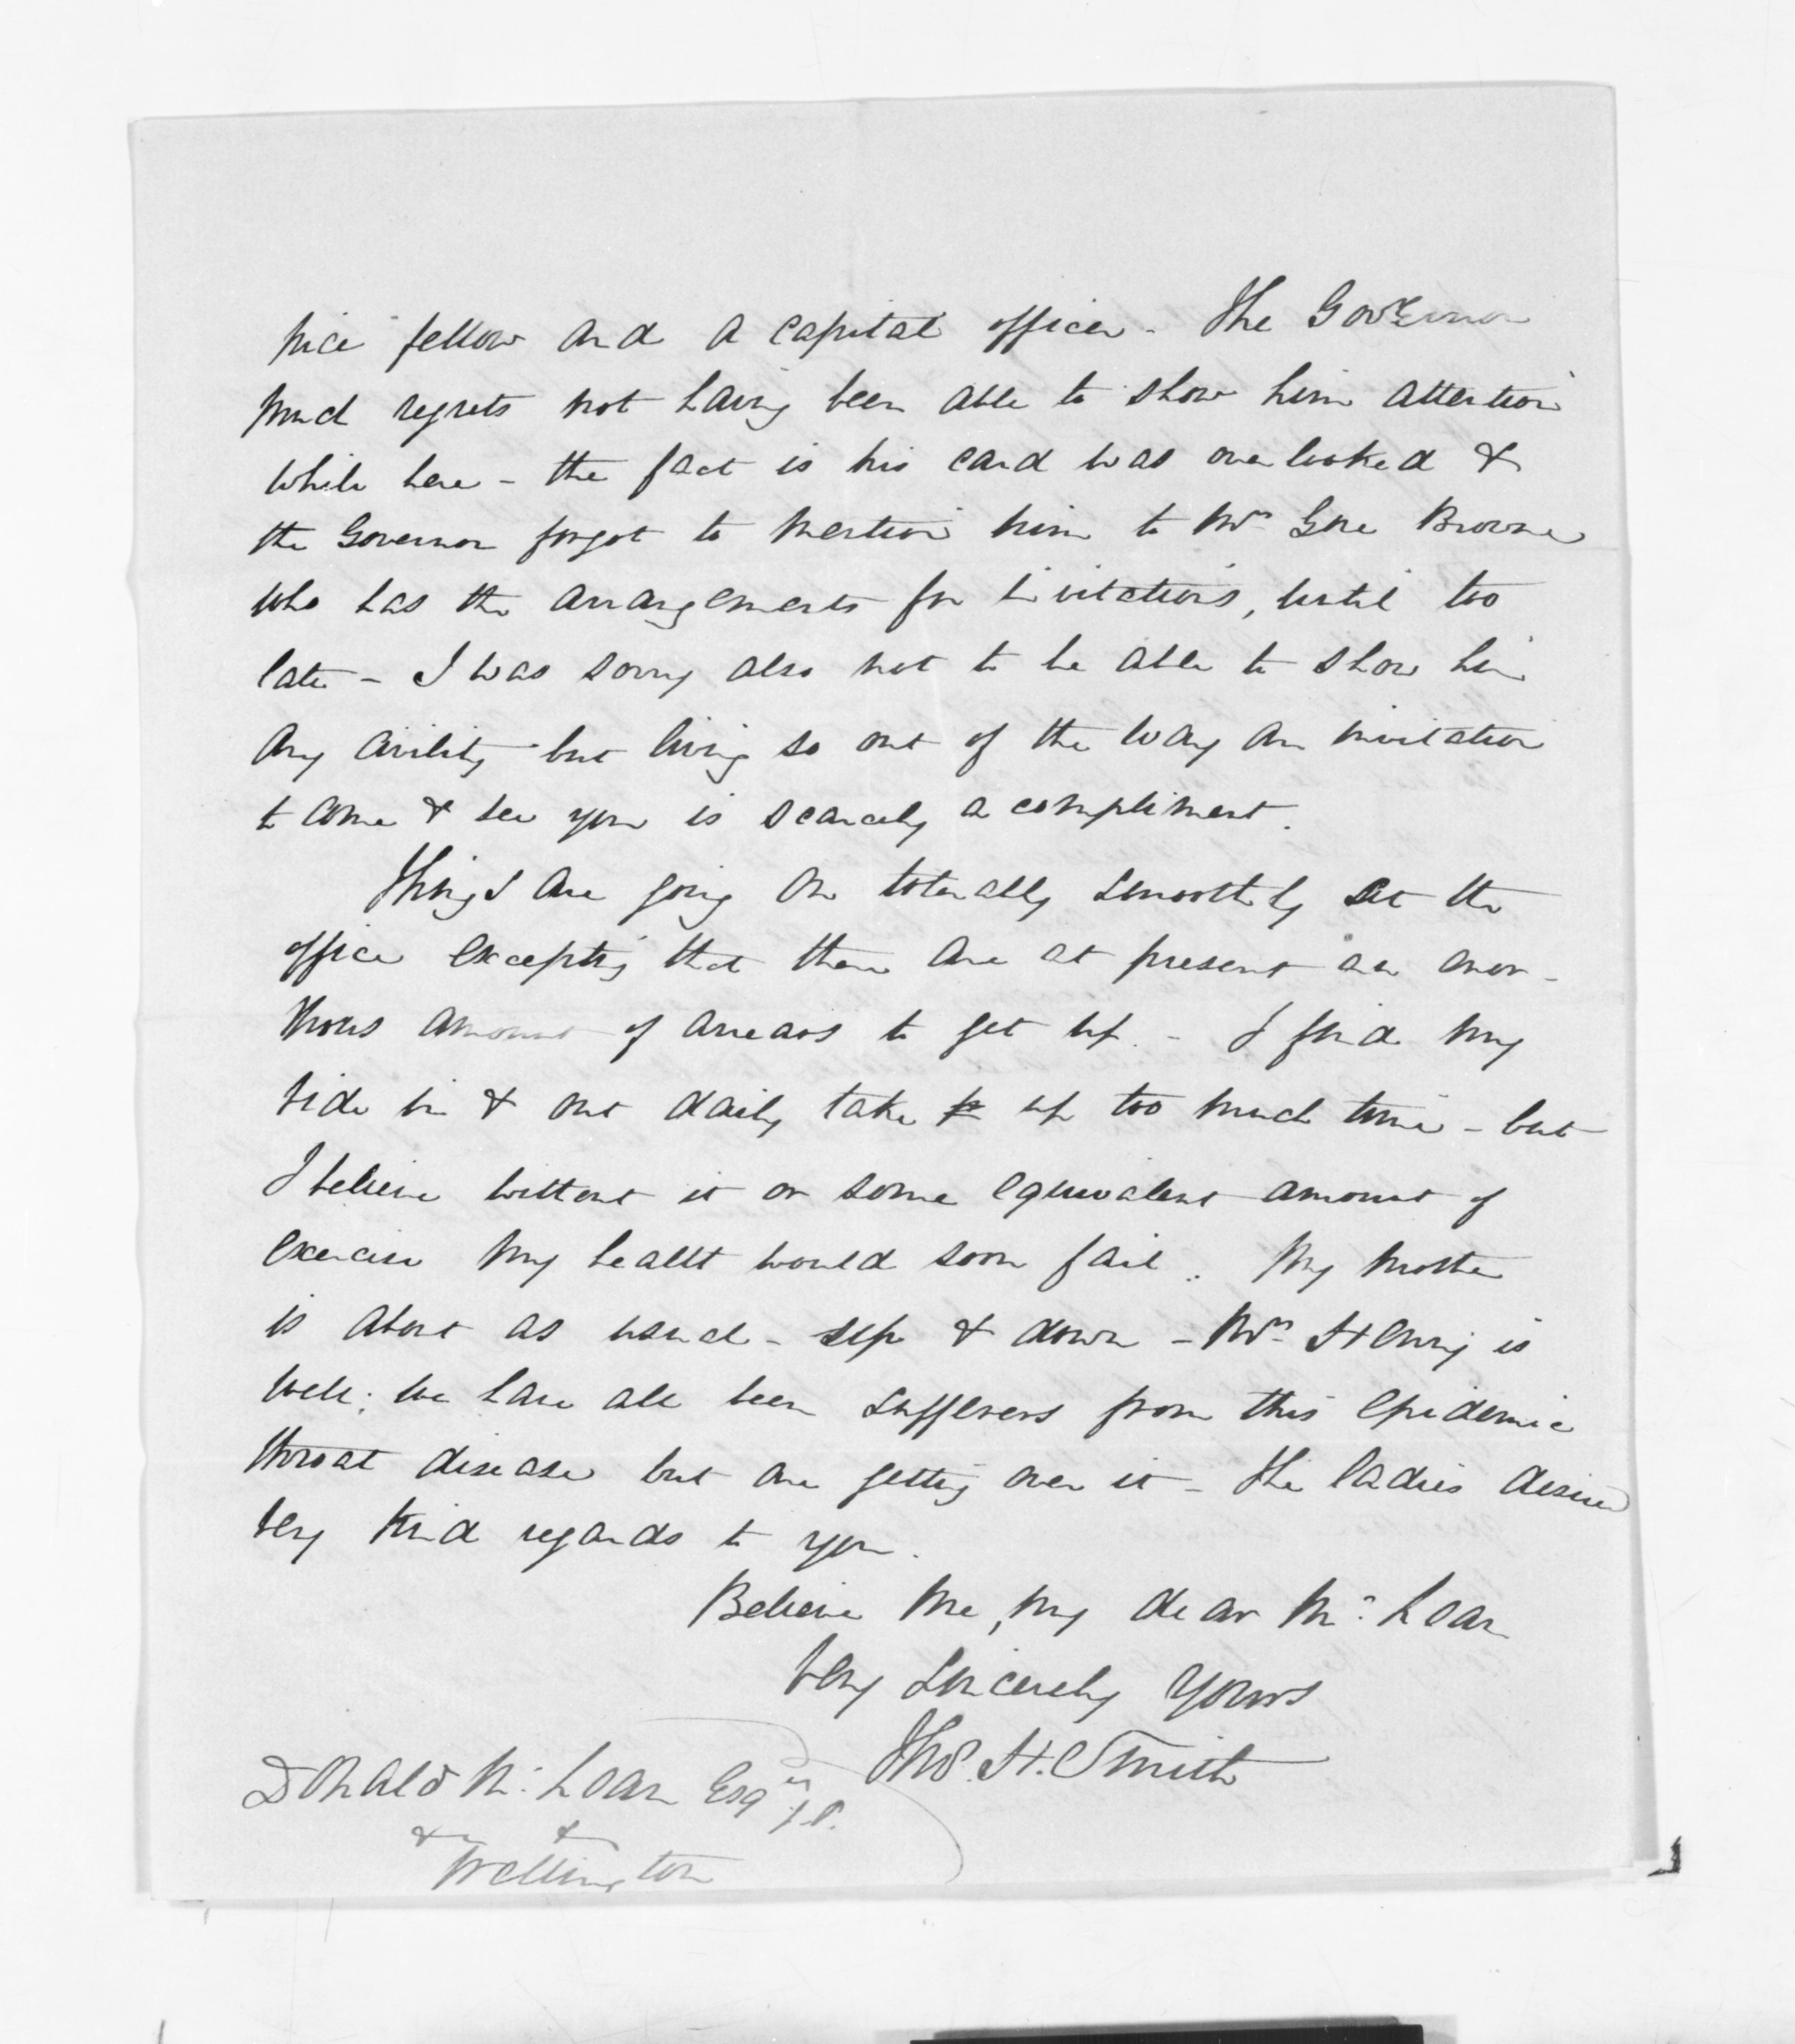 nice fellow and a capital officer - The Governor
much regrets not having been able to show him attention
while here - the fact is his card was overlooked &
the Governor forgot to mention him to Mrs Gore Browne
who has the arrangements for invitations, until too
late - I was sorry also not to be able to show him
any civility but living so out of the way an invitation
to come & see you is scarcely a compliment.
Things are going on tolerably smoothly at the
office excepting that there are at present an enor-
mous amount of arrears to get up. - I find my
ride in & out daily take up too much time - but
I believe without it or some equivalent amount of
exercise my health would soon fail. My mother
is about as usual - up & down - Mrs Henry is
well; we have all been sufferers from this epidemic
throat disease but are getting over it - The ladies desire
very kind regards to you.
Believe me, my dear Mc Lean
Very sincerely yours
Thos. H. Smith
Donald Mc Lean Esqre
J.P.
& &
Wellington